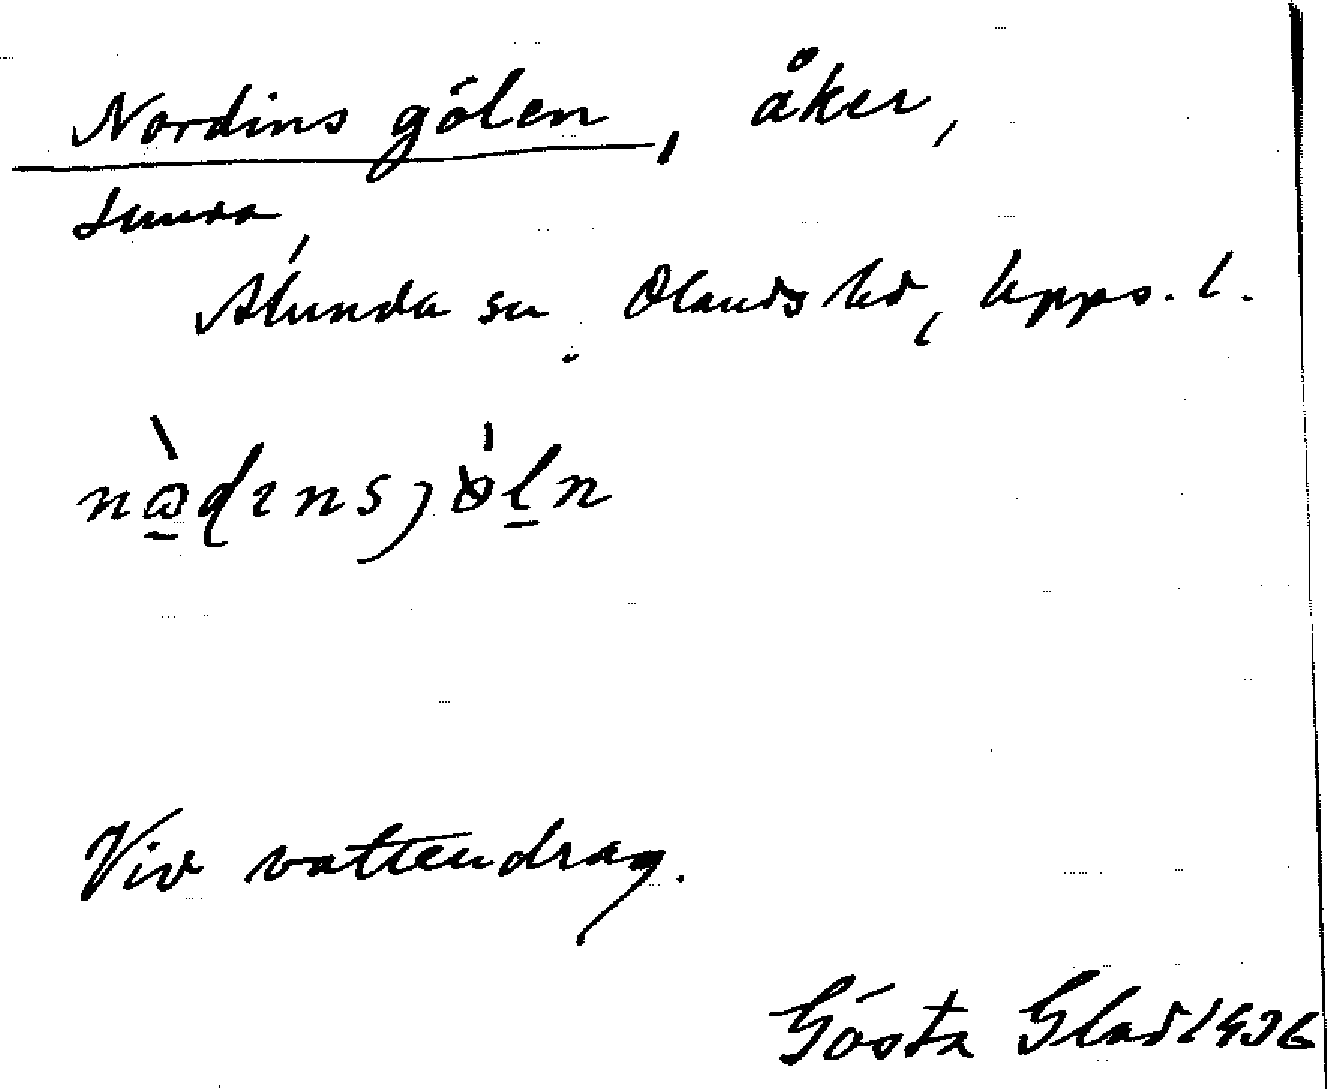 Nordins gölen, åker,
Sunda
Alunda sn Olands hd, Upps. l.
Vid vattendrag.
Gösta Glad 1936